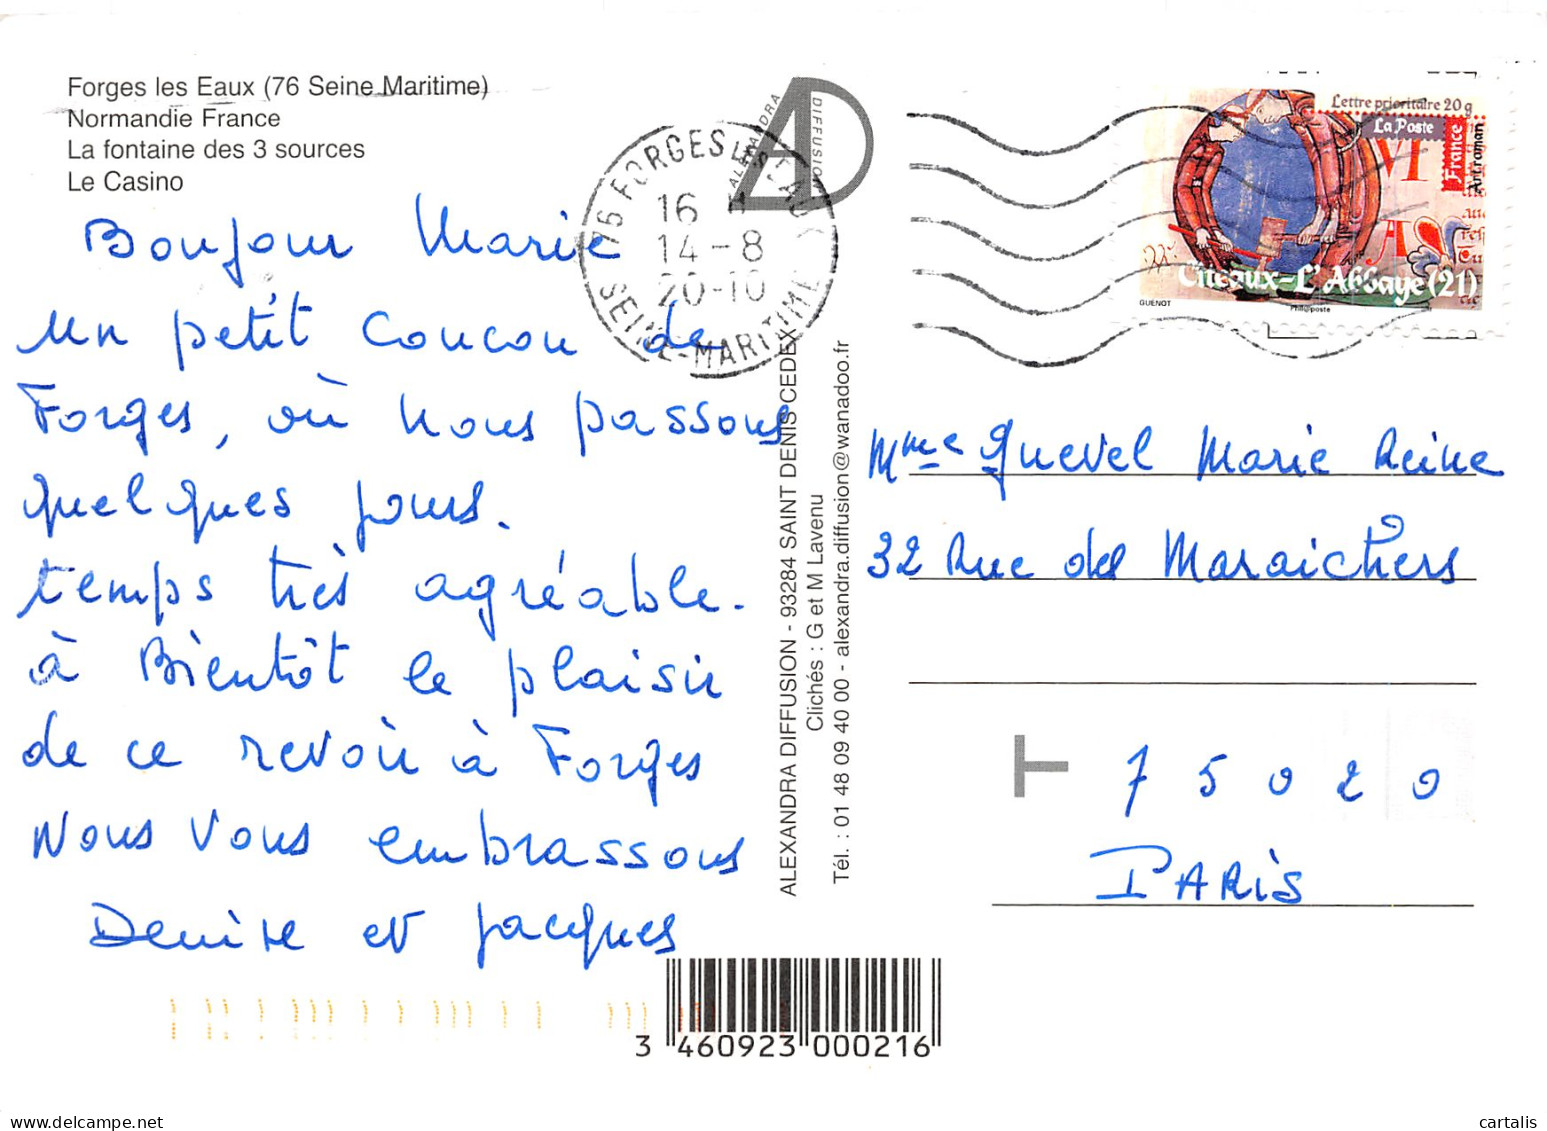 Forges les Eaux (76 Seine Maritime)
Normandie France
La fontaine des 3 sources
Le Casino
Bonjour Marie
un petit coucou de
Forges, où nous passons
quelques jours.
temps très agréable.
à Bientôt le plaisir
de ce revoir à Forges
Nous Vous embrassons
Denise et Jacques
ALEXANDRA
DIFFUSION
AD
76 FORGES LES EAUX
16 H
14-8
20-10
SEINE-MARITIME
ALEXANDRA DIFFUSION - 93284 SAINT DENIS CEDEX
Clichés : G et M Lavenu
Tél. : 01 48 09 40 00 - alexandra.diffusion@wanadoo.fr
Lettre prioritaire 20 g
La Poste
France
Art roman
Citeaux-L'Abbaye (21)
GUENOT
Phil@poste
Mme Quevel Marie Reine
32 Rue des Maraichers
T
75020
PARIS
3 460923 000216
cartalis